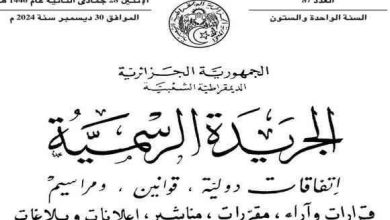 العدد 87
الإثنين 28 جمادى الثانية عام 1446 هـ
السنة الواحدة والستون
الموافق 30 ديسمبر سنة 2024 م
الجمهورية الجزائرية
الديمقراطية الشعبية
الجريدة الرسمية
إتفاقات دولية ، قوانين ، ومراسيم
قرارات وآراء ، مقررات ، مناشير ، إعلانات وبلاغات